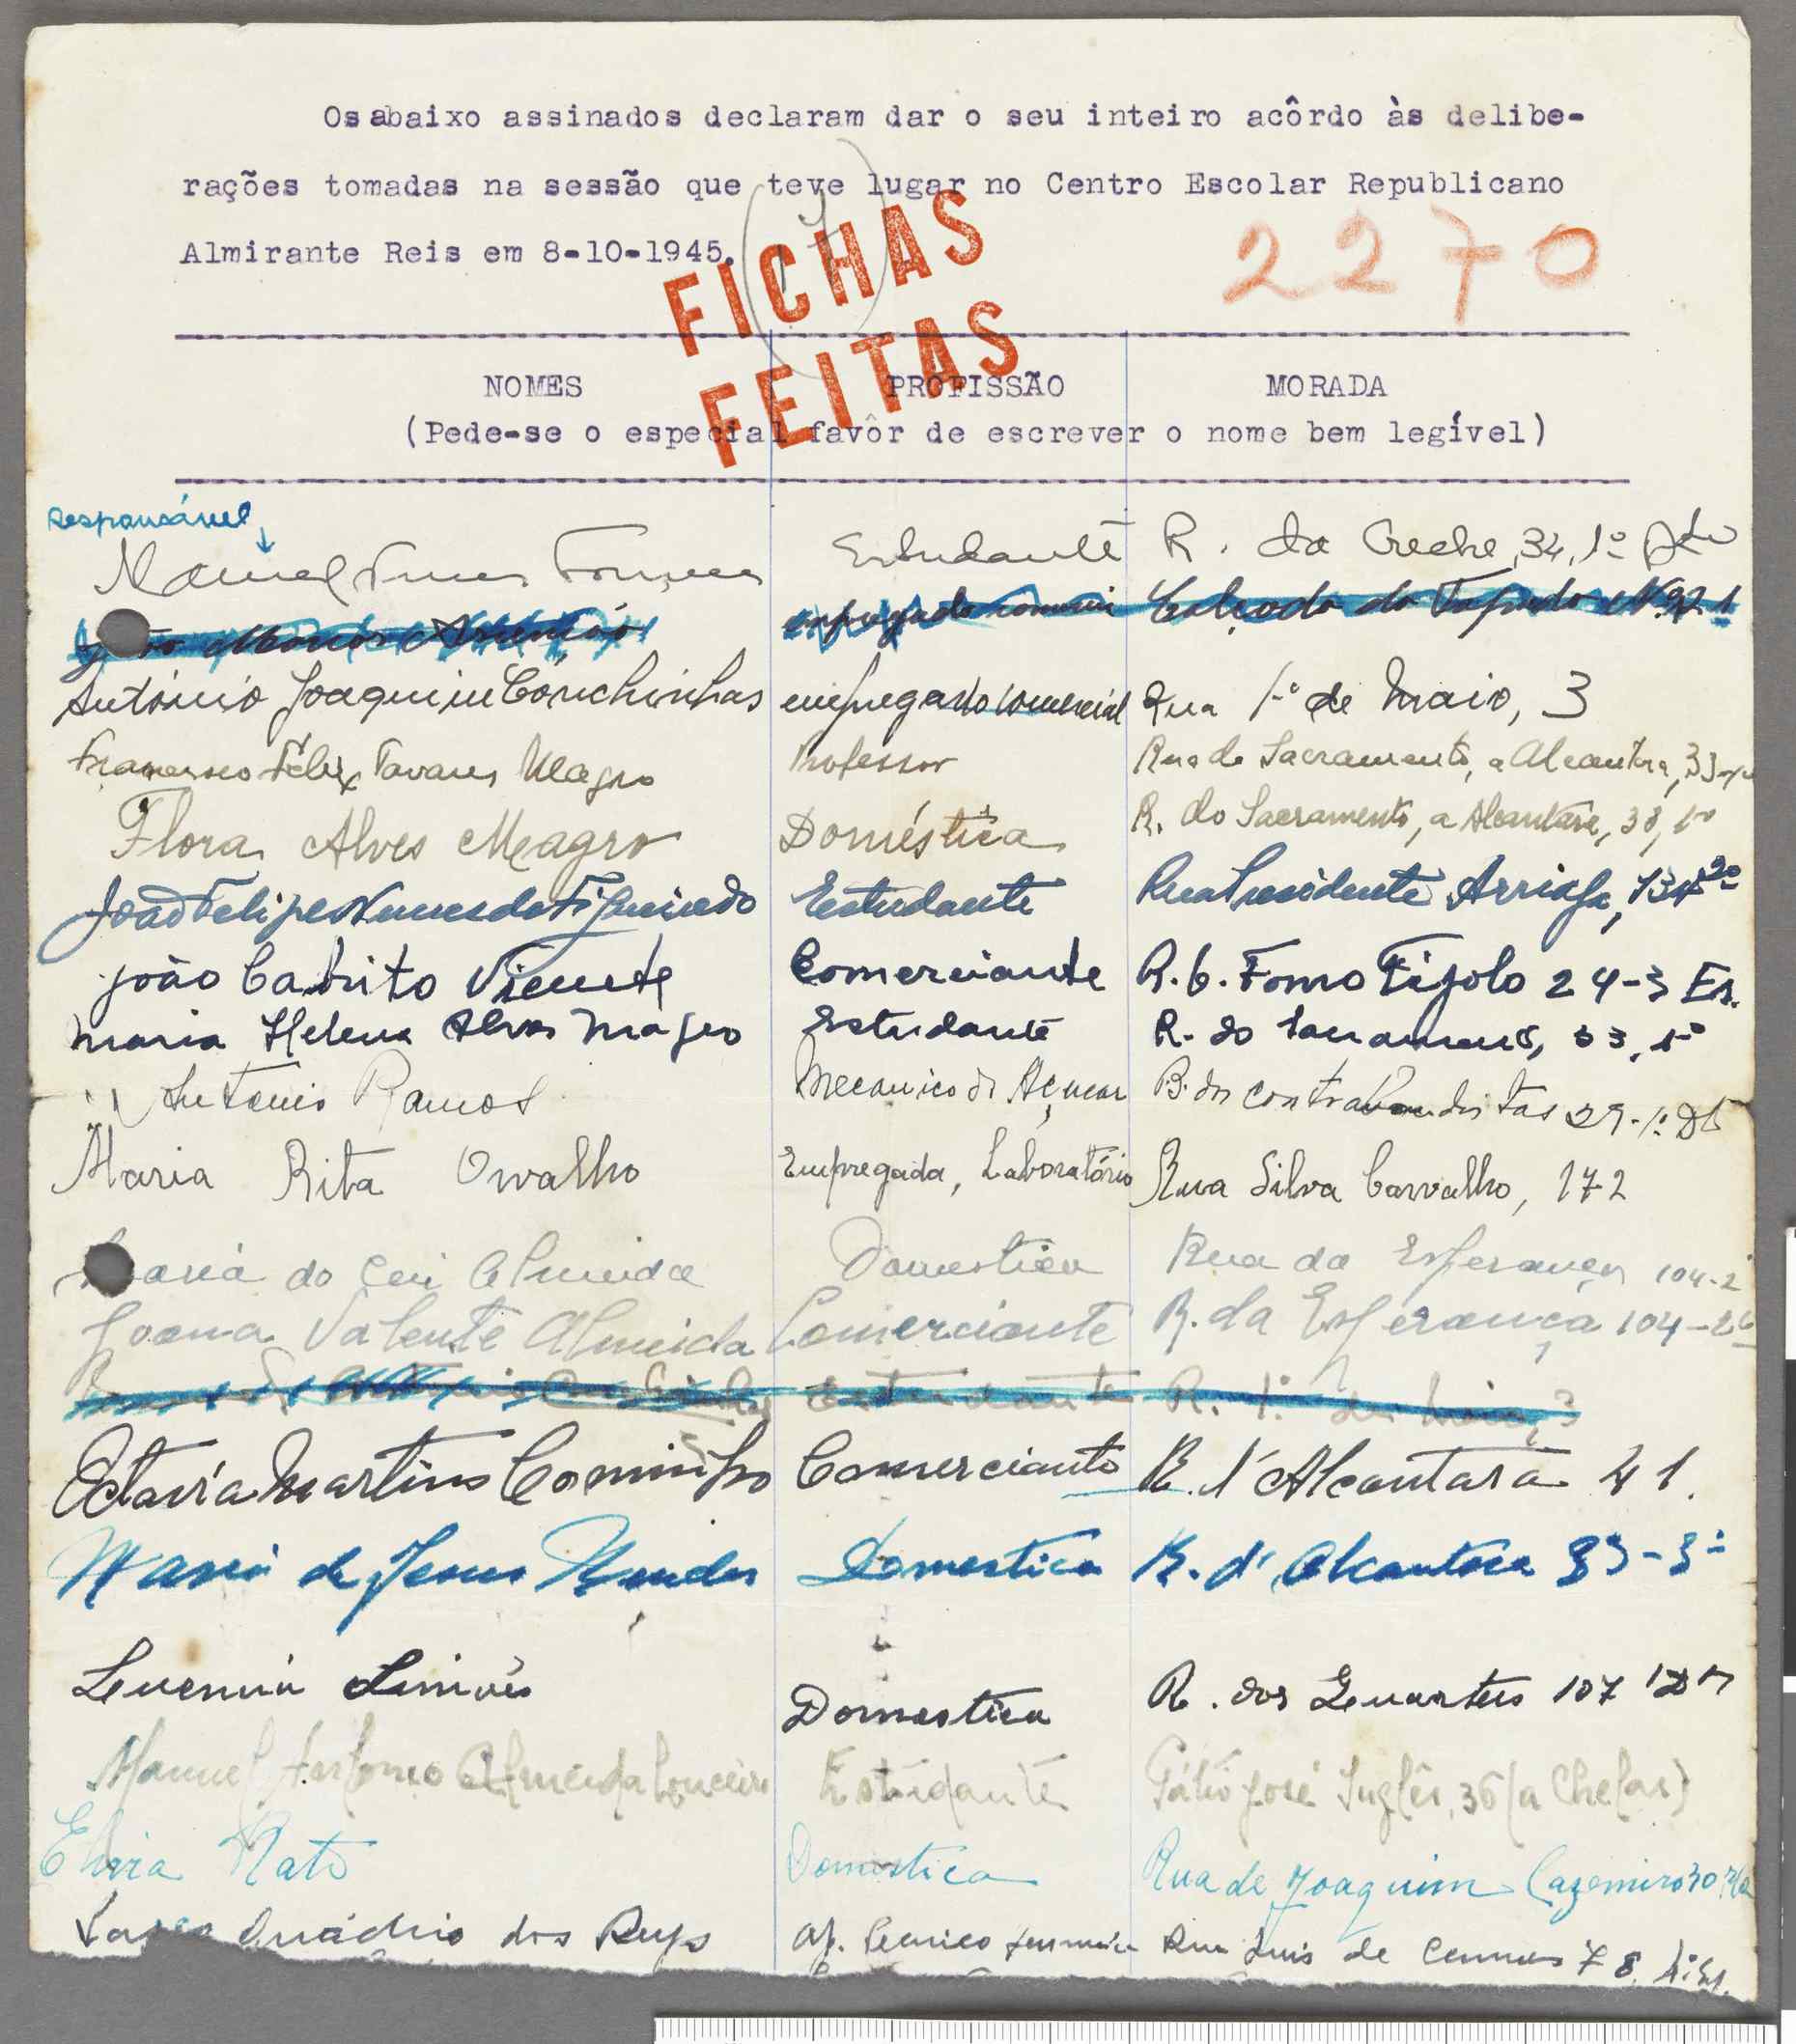 Os abaixo assinados declaram dar o seu inteiro acôrdo às delibe-
rações tomadas na sessão que teve lugar no Centro Escolar Republicano
Almirante Reis em 8-10-1945.
FICHAS
FEITAS
2270
NOMES PROFISSÃO MORADA
(Pede-se o especial favôr de escrever o nome bem legível)
responsável
Manuel Estudante R. da Creche, 34, 1º Dto
empregado Calçada da Tapada Nº
António Joaquim Conchinhas empregado comercial Rua 1º de Maio, 3
Francisco Félix Tavares Magro Professor Rua do Sacramento, a Alcantara, 33
Flora Alves Magro Doméstica R. do Sacramento, a Alcantara, 33, 1º
João Felipe Nunes de Figueiredo Estudante Rua Presidente Arriaga, 134 2º
João Cabrito Vicente Comerciante R. C. Forno Tijolo 24-3 Es.
Maria Helena Alves Magro Estudante R. do Sacramento, 33, 1º
Antonio Ramos Mecanico de Açucar B. dos Contrabandistas 29-1º Dt
Maria Rita Orvalho Empregada, Laboratório Rua Silva Carvalho, 172
Maria do Ceu Almeida Domestica Rua da Esperança 104-2
Joana Valente Almeida Comerciante R. da Esperança 104-2º
Estudante R. 1º de Maio, 3
Octavia Martins Comerciante R. d'Alcantara 41.
Maria de Jesus Mendes Domestica R. d'Alcantara 33-3º
Simões Domestica R. dos Quarteis 107
Manuel Antonio Almeida Estudante Pátio José Inglês, 36 (a Chelas)
Elvira Nato Domestica Rua de Joaquim Cazemiro 30
dos Reys Rua Luis de Camoes 78